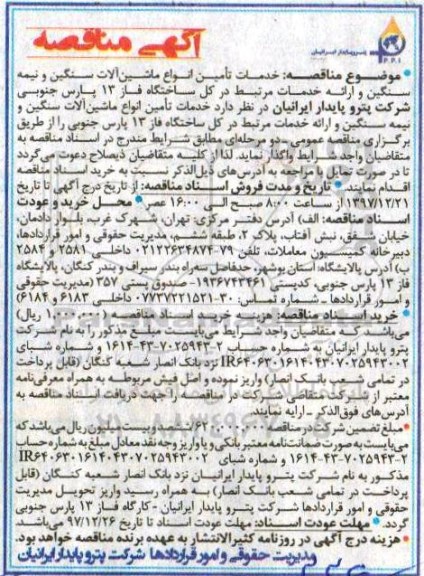 آگهی مناقصه
پترو پایدار ایرانیان
P.P.I
• موضوع مناقصه: خدمات تأمین انواع ماشین‌آلات سنگین و نیمه
سنگین و ارائه خدمات مرتبط در کل ساختگاه فاز ۱۳ پارس جنوبی
شرکت پترو پایدار ایرانیان در نظر دارد خدمات تأمین انواع ماشین‌آلات سنگین و
نیمه سنگین و ارائه خدمات مرتبط در کل ساختگاه فاز ۱۳ پارس جنوبی را از طریق
برگزاری مناقصه عمومی - دو مرحله‌ای مطابق شرایط مندرج در اسناد مناقصه به
متقاضیان واجد شرایط واگذار نماید. لذا از کلیه متقاضیان ذیصلاح دعوت می‌گردد
تا در صورت تمایل با مراجعه به آدرس‌های ذیل‌الذکر نسبت به خرید اسناد مناقصه
اقدام نمایند. • تاریخ و مدت فروش اسناد مناقصه: از تاریخ درج آگهی تا تاریخ
۱۳۹۷/۱۲/۲۱ از ساعت ۸:۰۰ صبح الی ۱۶:۰۰ عصر • محل خرید و عودت
اسناد مناقصه: الف) آدرس دفتر مرکزی: تهران، شهرک غرب، بلوار دادمان،
خیابان شفق، نبش آفتاب، پلاک ۲، طبقه ششم، مدیریت حقوقی و امور قراردادها،
دبیرخانه کمیسیون معاملات، تلفن ۷۹-۰۲۱۲۲۶۳۴۸۷۴ داخلی ۲۵۸۱ و ۲۵۸۴
ب) آدرس پالایشگاه: استان بوشهر، حدفاصل سه‌راه بندر سیراف و بندر کنگان، پالایشگاه
فاز ۱۳ پارس جنوبی، کدپستی ۱۹۳۶۷۴۳۴۶۱- صندوق پستی ۳۵۷ (مدیریت حقوقی
و امور قراردادها - شماره تماس: ۳۰-۰۷۷۳۷۲۲۱۵۲۱ داخلی ۶۱۸۳ و ۶۱۸۴)
• خرید اسناد مناقصه: هزینه خرید اسناد مناقصه (۱.۰۰۰.۰۰۰ ریال)
می‌باشد که متقاضیان واجد شرایط می‌بایست مبلغ مذکور را به نام شرکت
پترو پایدار ایرانیان به شماره حساب ۲-۷۰۲۵۹۴۳-۴۳-۱۶۱۴ و شماره شبای
IR۶۴۰۶۳۰۱۶۱۴۰۴۳۰۷۰۲۵۹۴۳۰۰۲ نزد بانک انصار شعبه کنگان (قابل پرداخت
در تمامی شعب بانک انصار) واریز نموده و اصل فیش مربوطه به همراه معرفی‌نامه
معتبر از شرکت متقاضی شرکت در مناقصه را جهت دریافت اسناد مناقصه به
آدرس‌های فوق‌الذکر - ارایه نمایند.
• مبلغ تضمین شرکت در مناقصه ۶۲۰.۰۰۰.۰۰۰ ششصد و بیست میلیون ریال می‌باشد که
می‌بایست به صورت ضمانت‌نامه معتبر بانکی و یا واریز وجه نقد معادل مبلغ به شماره حساب
۲-۷۰۲۵۹۴۳-۴۳-۱۶۱۴ و شماره شبای IR۶۴۰۶۳۰۱۶۱۴۰۴۳۰۷۰۲۵۹۴۳۰۰۲
مذکور به نام شرکت پترو پایدار ایرانیان نزد بانک انصار شعبه کنگان (قابل
پرداخت در تمامی شعب بانک انصار) به همراه رسید واریز تحویل مدیریت
حقوقی و امور قراردادها شرکت پترو پایدار ایرانیان - کارگاه فاز ۱۳ پارس جنوبی
گردد. • مهلت عودت اسناد: مهلت عودت اسناد تا تاریخ ۹۷/۱۲/۲۶ می‌باشد.
• هزینه درج آگهی در روزنامه کثیرالانتشار به عهده برنده مناقصه خواهد بود.
مدیریت حقوقی و امور قراردادها شرکت پترو پایدار ایرانیان